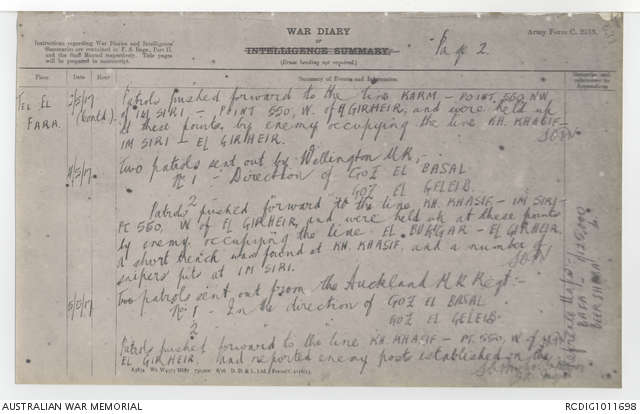 Instructions regarding War Diaries and Intelligence
Summaries are contained in F. S. Regs., Part II.
and the Staff Manual respectively. Title pages
will be prepared in manuscript.
WAR DIARY
or
INTELLIGENCE SUMMARY.
(Erase heading not required.)
Army Form C. 2118.
Page 2
Place
Date
Hour
Summary of Events and Information
Remarks and
references to
Appendices
TEL EL
FARA.
3/5/17
(contd).
Patrols pushed forward to the line KARM – POINT 550 NW
of IM SIRI – POINT 550, W. of EL GIRHEIR, and were held up
at these points by enemy occupying the line KH. KHASIF –
IM SIRI – EL GIRHEIR.
4/5/17.
Two patrols sent out by Wellington M.R.,–
No 1 – Direction of GOZ EL BASAL
2 GOZ EL GELEIB.
Patrols pushed forward to the line KH. KHASIF – IM SIRI –
PT 550, W. of EL GIRHEIR, and were held up at these points
by enemy occupying the line EL BUGGAR – EL GIRHEIR.
A short trench was found at KH. KHASIF, and a number of
snipers pits at IM SIRI.
5/5/17.
Two patrols sent out from the Auckland M.R. Regt –
No 1 – In the direction of GOZ EL BASAL
2 GOZ EL GELEIB.
Patrols pushed forward to the line KH. KHASIF – PT. 550, W. of
EL GIRHEIR, and reported enemy posts established in the
Reference Maps:–
BEERSHEBA
AUSTRALIAN WAR MEMORIAL
RCDIG1011698